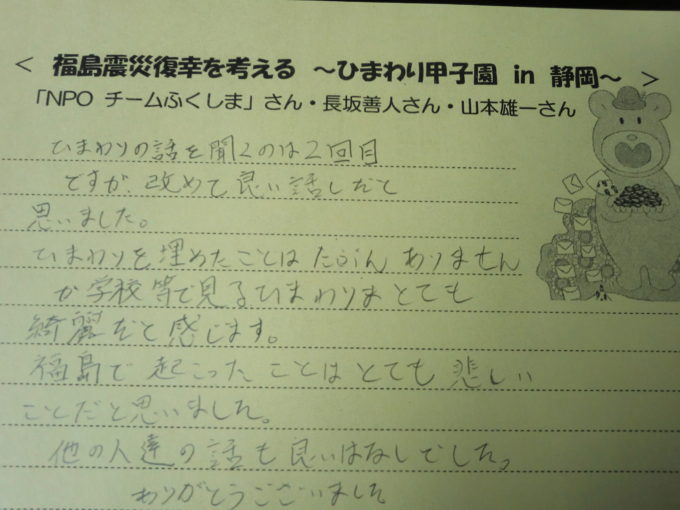 < 福島震災復幸を考える ～ひまわり甲子園 in 静岡～ >
「NPO チームふくしま」さん・長坂善人さん・山本雄一さん
ひまわりの話を聞くのは2回目
ですが、改めて良い話しだと
思いました。
ひまわりを埋めたことは たぶん ありません
が学校等で見るひまわりはとても
綺麗だと感じます。
福島で起こったことはとても悲しい
ことだと思いました。
他の人達の話も良いはなしでした。
ありがとうございました